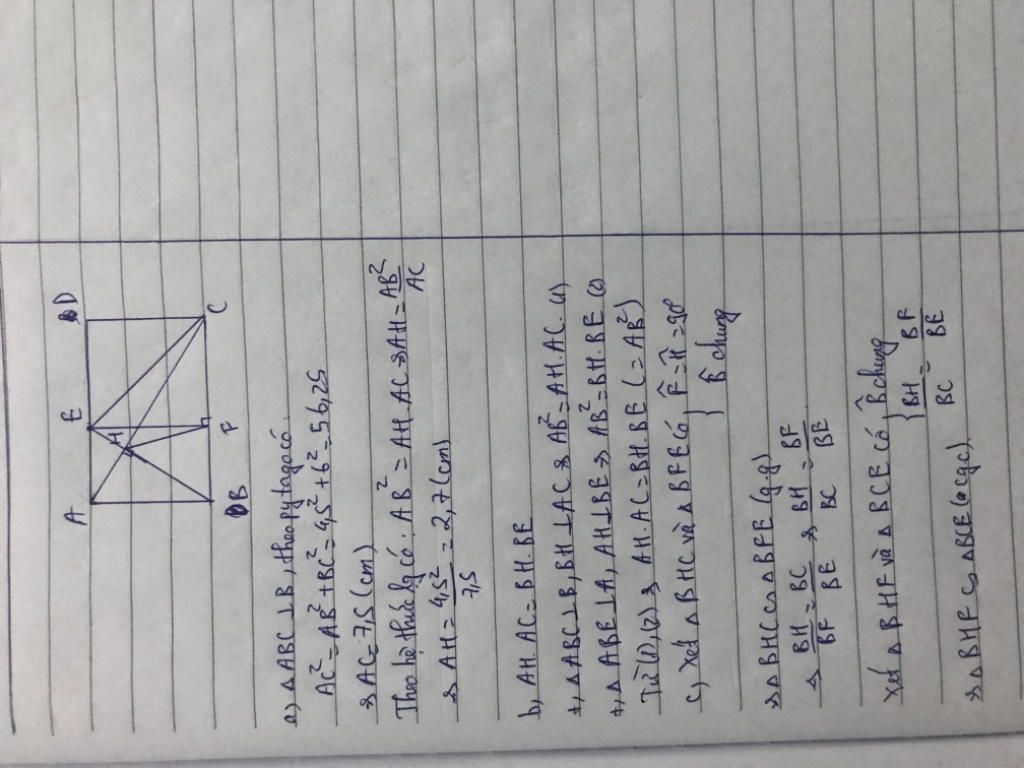 A E D
H
B F C
a) △ABC ⊥ B, theo pytago có
AC² = AB² + BC² = 4,5² + 6² = 56,25
⇒ AC = 7,5 (cm)
Theo hệ thức lg có: AB² = AH. AC ⇒ AH = AB²/AC
⇒ AH = 4,5²/7,5 = 2,7 (cm)
b, AH. AC = BH. BE
+, △ABC ⊥ B, BH ⊥ AC ⇒ AB² = AH. AC. (1)
+, △ABE ⊥ A, AH ⊥ BE ⇒ AB² = BH. BE (2)
Từ (1), (2) ⇒ AH. AC = BH. BE (= AB²)
c, xét △BHC và △BFE có { F̂ = Ĥ = 90°
B̂ chung
⇒ △BHC ∽ △BFE (g.g)
⇒ BH/BF = BC/BE ⇒ BH/BC = BF/BE
xét △BHF và △BCE có { B̂ chung
BH/BC = BF/BE
⇒ △BHF ∽ △BCE (cgc)